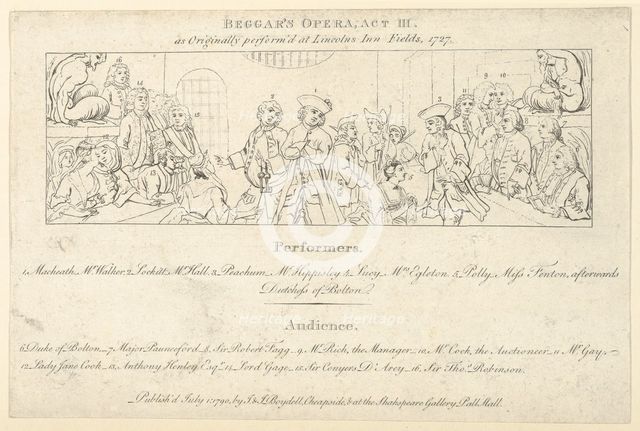 BEGGAR'S OPERA, ACT III.
as Originally perform'd at Lincolns Inn Fields, 1727.
Performers.
1, Macheath, Mr. Walker. 2, Lockitt, Mr. Hall. 3, Peachum, Mr. Hippisley. 4, Lucy, Mrs. Egleton. 5, Polly, Miss Fenton, afterwards
Dutchess of Bolton.
Audience.
6, Duke of Bolton. 7, Major Paunceford. 8, Sir Robert Fagg. 9, Mr. Rich, the Manager. 10, Mr. Cock, the Auctioneer. 11, Mr. Gay.
12, Lady Jane Cook. 13, Anthony Henley, Esqr. 14, Lord Gage. 15, Sir Conyers D'Arcy. 16, Sir Thos. Robinson.
Publish'd July 1, 1790, by J. & J. Boydell, Cheapside, & at the Shakspeare Gallery Pall Mall.
Heritage
Heritage